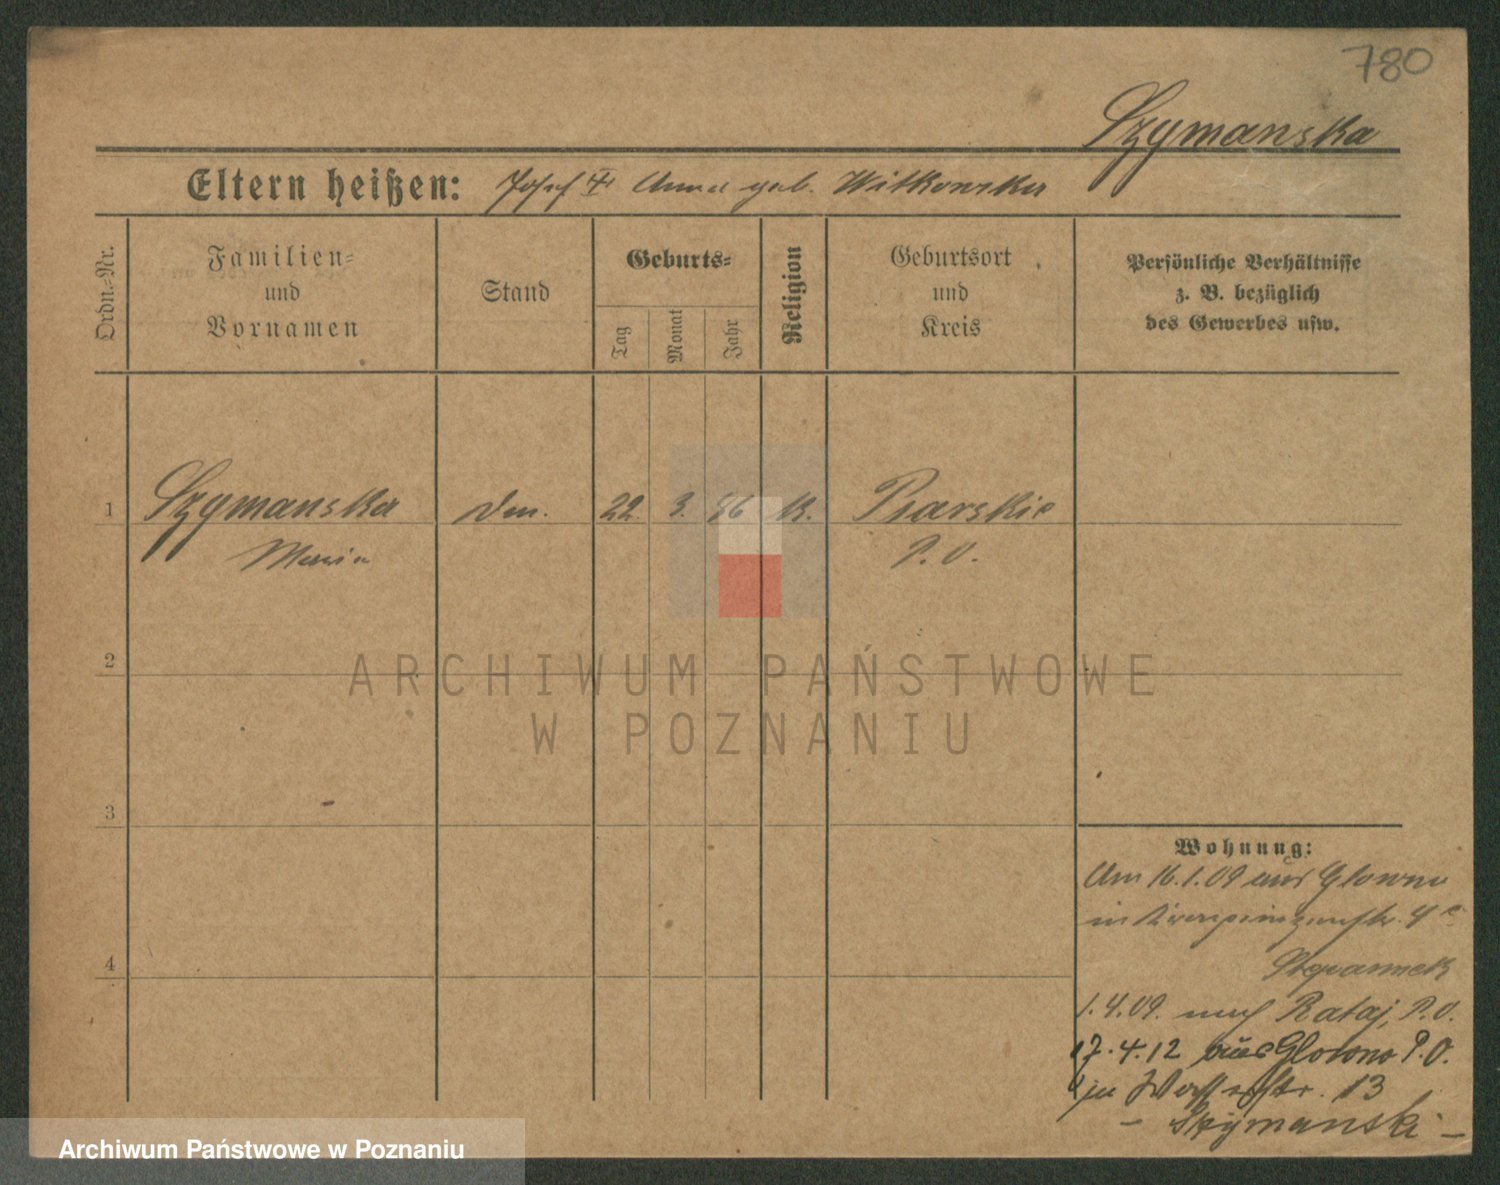 780
Szymanska
Eltern heißen: Josef † Anna geb. Witkowska
Ordn.-Nr.
Familien-
und
Vornamen
Stand
Geburts-
Tag
Monat
Jahr
Religion
Geburtsort
und
Kreis
Persönliche Verhältnisse
z. B. bezüglich
des Gewerbes usw.
1 Szymanska 22. 3. 86 K. Psarskie
Maria P. O.
2
3
4
ARCHIWUM PAŃSTWOWE
W POZNANIU
Wohnung:
Am 16.1.09 aus Glowno
in 4
1.4.09. nach Rataj, P.O.
17.4.12 aus Glowno P.O.
in Wasserstr. 13
- Szymanski -
Archiwum Państwowe w Poznaniu